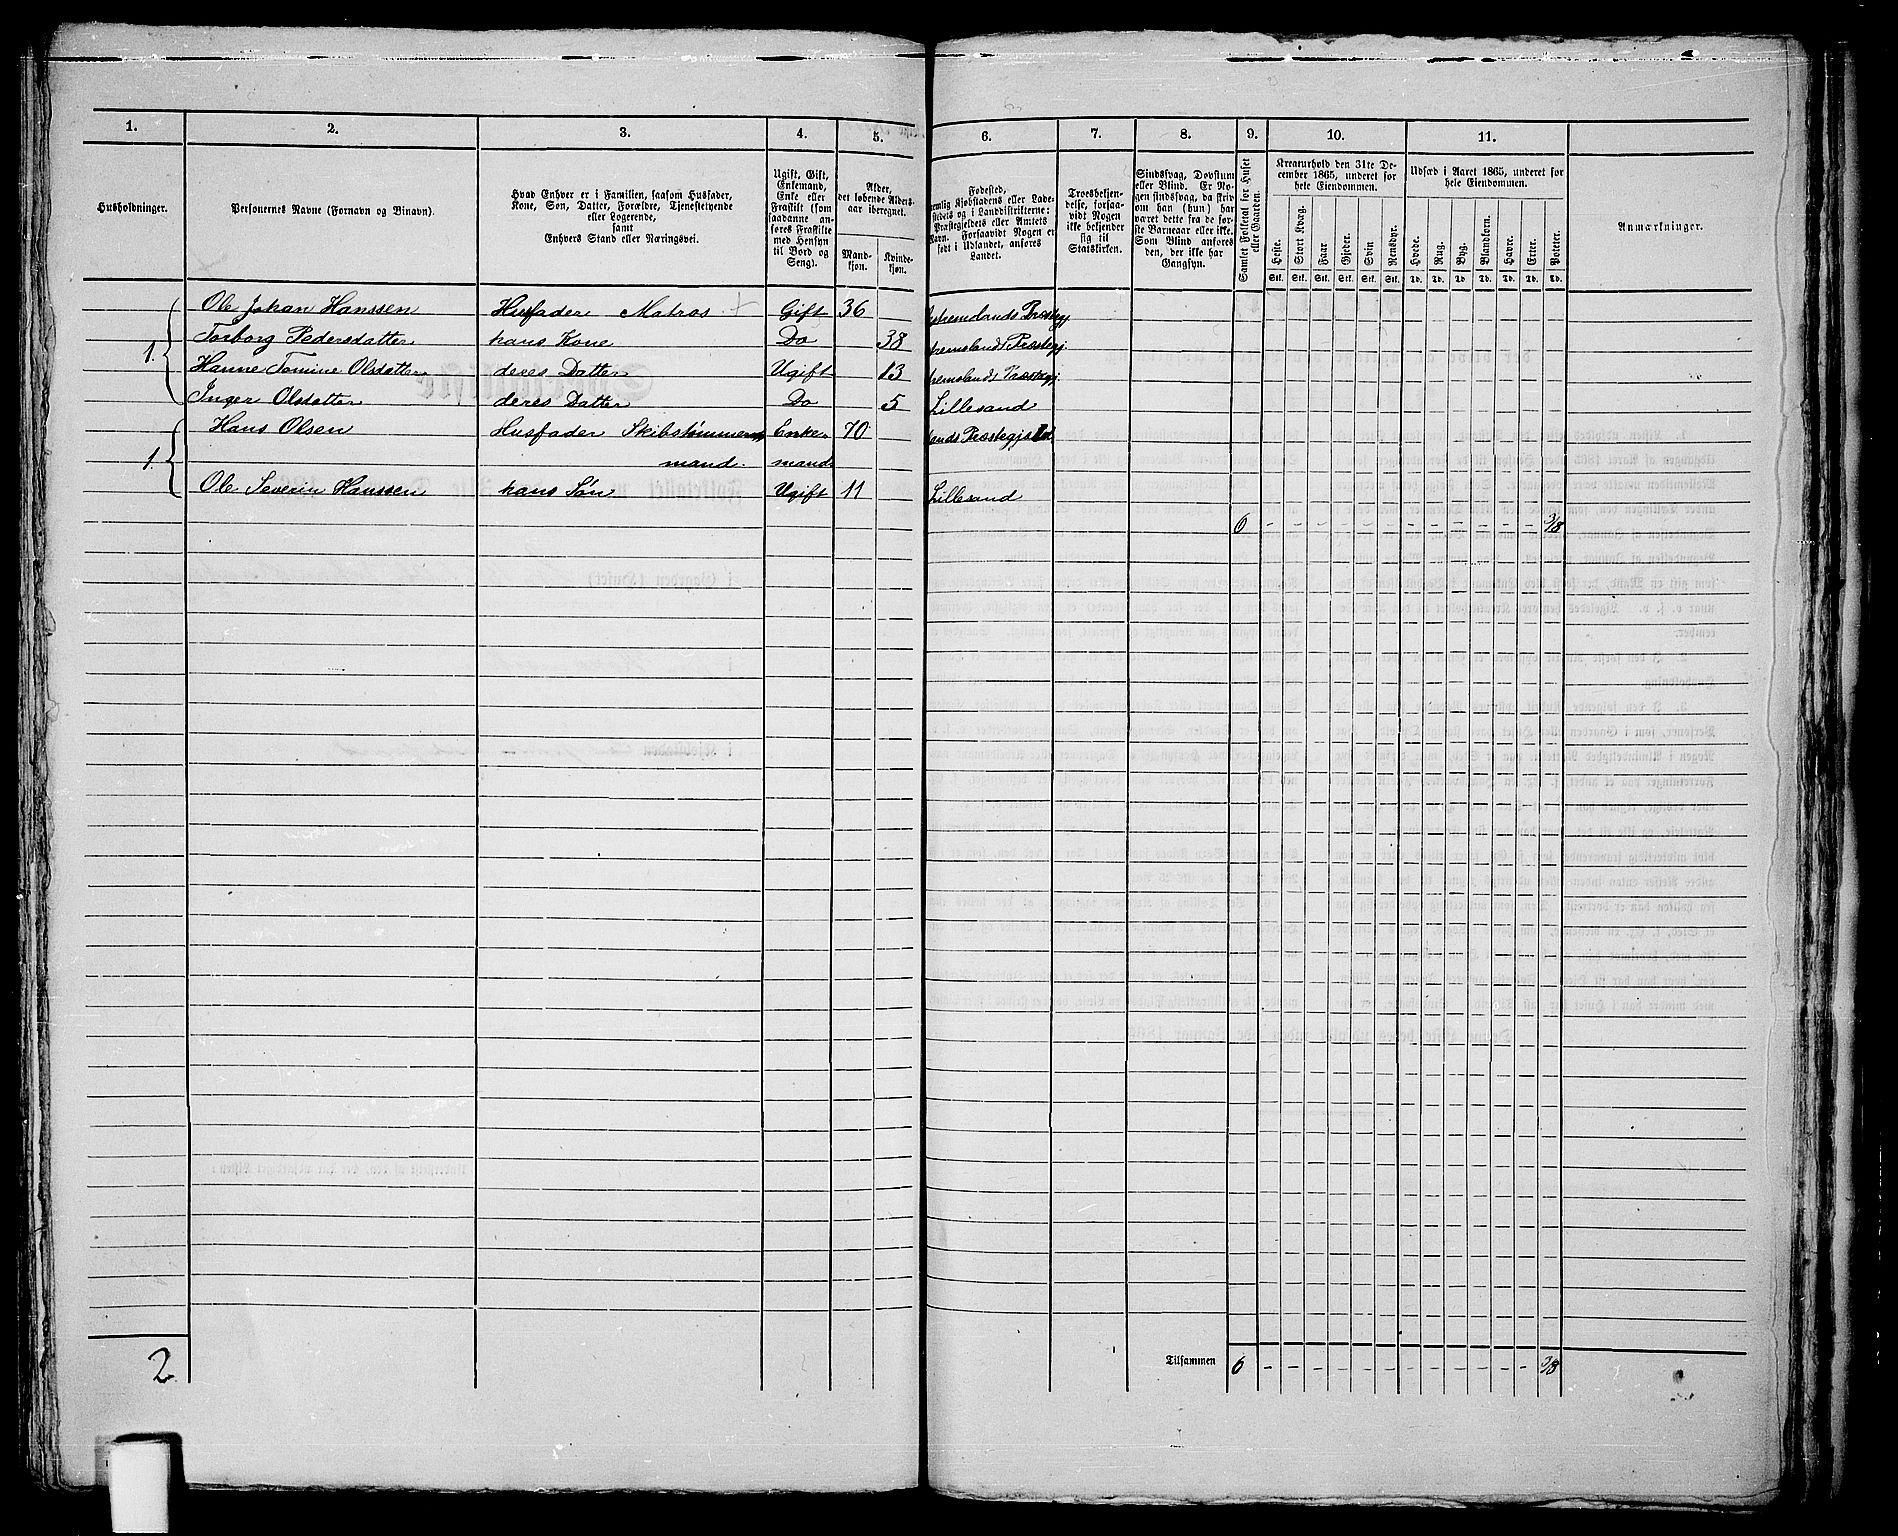 1. 2. 3. 4. 5. 6. 7. 8. 9. 10. 11.
Husholdninger.
Personernes Navne (Fornavn og Binavn).
Hvad Enhver er i Familien, saasom Husfader,
Kone, Søn, Datter, Forældre, Tjenestetyende
eller Logerende,
samt
Enhvers Stand eller Næringsvei.
Ugift, Gift,
Enkemand,
Enke eller
Fraskilt (som
saadanne an-
føres Fraskilte
med Hensyn
til Bord og
Seng).
Alder,
det løbende Alders-
aar iberegnet.
Mand-
kjøn.
Kvinde-
kjøn.
Fødested,
nemlig Kjøbstadens eller Lade-
stedets og i Landdistrikterne:
Præstegjeldets eller Amtets
Navn. Forsaavidt Nogen er
født i Udlandet, anføres
Landet.
Troesbekjen-
delse, forsaa-
vidt Nogen
ikke bekjender
sig til
Statskirken.
Sindssvag, Døvstum
eller Blind. Er No-
gen sindssvag, da skriv
om han (hun) har
været dette fra de før-
ste Barneaar eller ikke.
Som Blind anføres
den, der ikke har
Gangsyn.
Samlet Folketal for Huset
eller Gaarden.
Kreaturhold den 31te De-
cember 1865, underet for
hele Eiendommen.
Heste. Stort Kvæg. Faar. Gjeder. Svin. Rensdyr.
Stk. Stk. Stk. Stk. Stk. Stk.
Udsæd i Aaret 1865, underet for
hele Eiendommen.
Hvede. Rug. Byg. Blandkorn. Havre. Erter. Poteter.
Td. Td. Td. Td. Td. Td. Td.
Anmærkninger.
Ole Johan Hanssen Husfader Matros + Gift 36 Præstegj
Torborg Pedersdatter hans Kone Do 38 Præstegj.
1. Hanne Tomine Olsdatter deres Datter Ugift 13 Præstegj
Inger Olsdatter deres Datter Do 5 Lillesand
Hans Olsen Husfader Skibstømmer Enke- 70
1. mand. mand
Ole Severin Hanssen hans Søn Ugift 11 Lillesand
6 - - - - - - - - - - - - 3/8
2 Tilsammen 6 - - - - - - - - - - - - 3/8